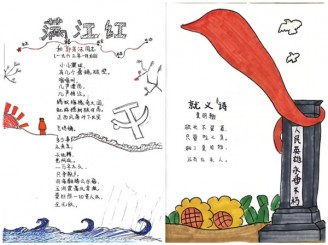 满江红
和郭沫若同志
一九六三年一月九日
小小寰球,
有几个苍蝇碰壁。
嗡嗡叫,
几声凄厉,
几声抽泣。
蚂蚁缘槐夸大国,
蚍蜉撼树谈何易。
正西风落叶下长安
飞鸣镝。
多少事,
从来急;
天地转,
光阴迫。
一万年太久,
只争朝夕。
四海翻腾云水怒,
五洲震荡风雷激。
要扫除一切害人虫,
全无敌。
就义诗
夏明翰
砍头不要紧,
只要主义真。
杀了夏明翰,
后来人。
人民英雄永垂不朽